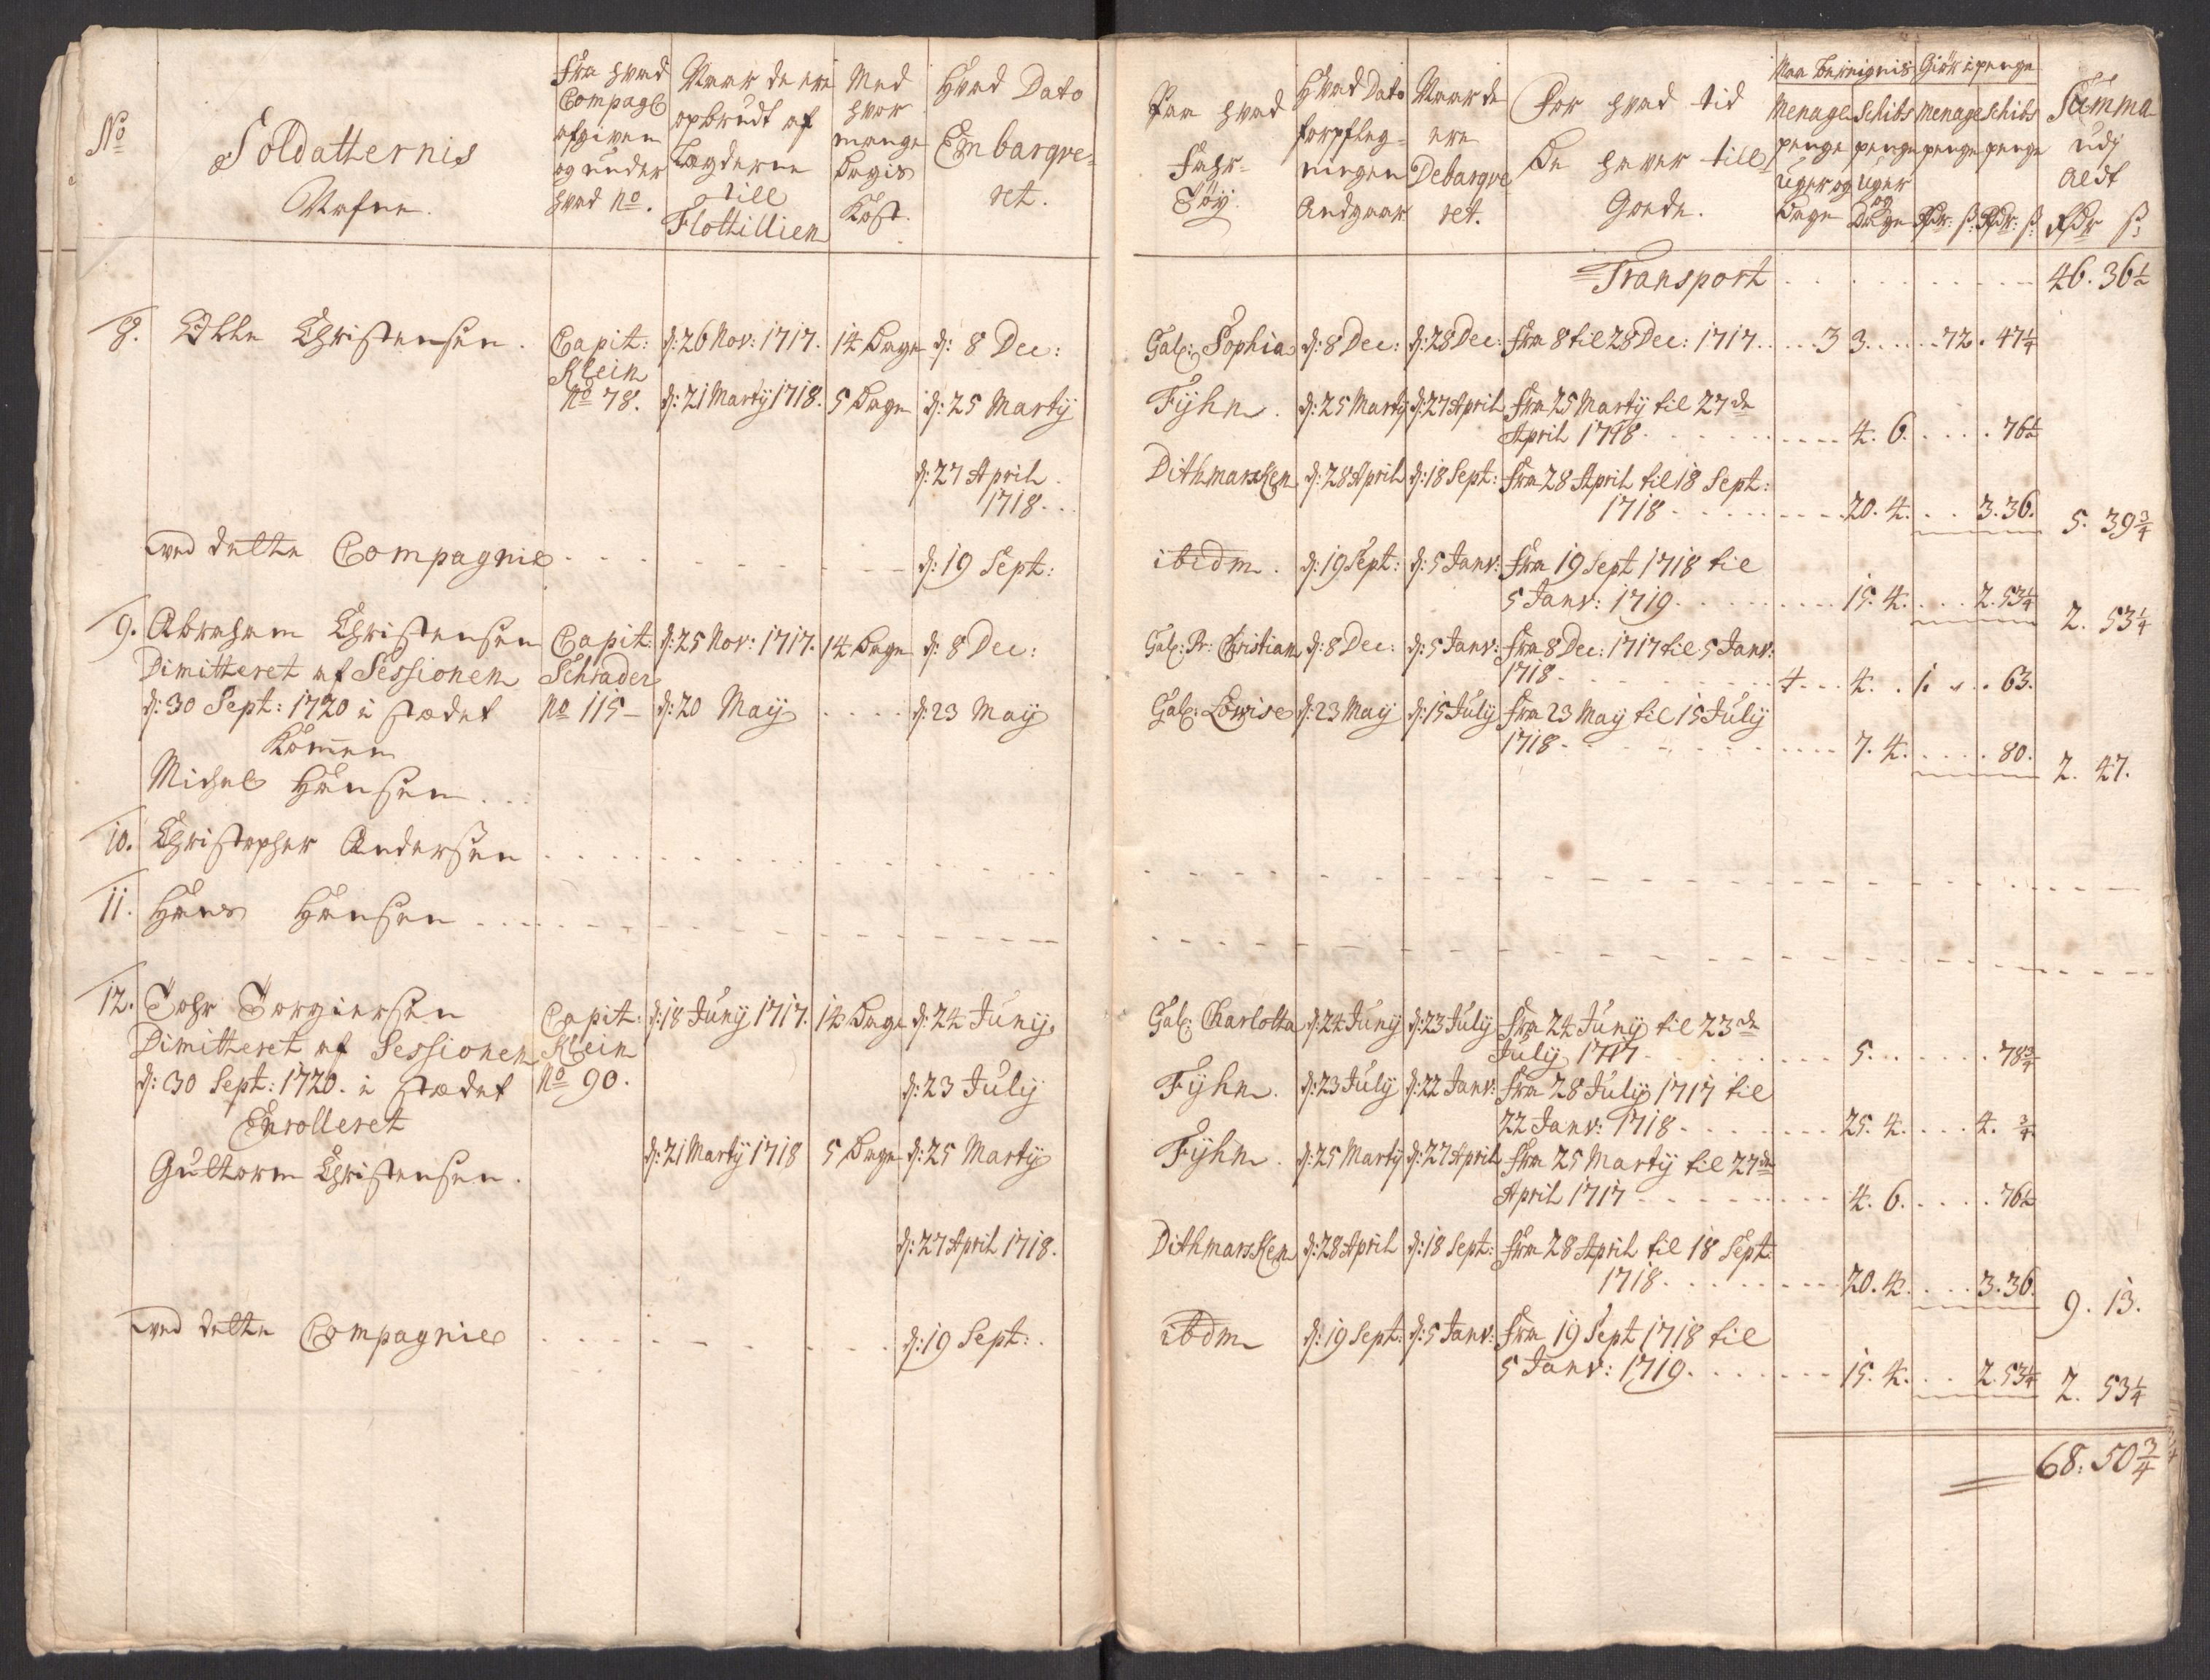 No
Soldatternis
Nafne.
Fra hvad
Compag:
afgiven
og under
hvad No.
Naar de ere
opbrudt af
Lægderne
till
Flottillien
Med
hvor
mange
Dagis
Kost.
Hvad Dato
Embarqve-
ret.
Paa hvad
Fahr-
Töy.
Hvad Dato
forpfleg-
ningen
Andgaar
Naar de
ere
Debarqve
ret.
For hvad tid
De haver till
Gode.
Menage
penge
Uger og
Dage
Schibs
penge
Uger
og
Dage
Giör i penge
Menage
penge
Rdr: ß:
Schibs
penge
Rdr: ß:
Summa
udj
aldt
Rdr ß:
Transport . . . . . . . . . 46. 36½
8. Olle Christensen. Capit: d: 26 Nov: 1717. 14 Dage d: 8 Dec: Gal: Sophia d: 8 Dec: d: 28 Dec: fra 8 til 28 Dec: 1717. . . . 3 3. . . . . 72. 47¼
Klein
No 78. d: 21 Marty 1718. 5 Dage d: 25 Marty Fyhn. d: 25 Marty d: 27 April fra 25 Marty til 27de
April 1718. . . . . 4. 6. . . . . 76½
d: 27 April Dithmarsken d: 28 April d: 18 Sept: fra 28 April til 18 Sept:
1718. . . 1718 . . . . . 20. 4. . . 3. 36. 5. 39¾
ved dette Compagnie . . . . d: 19 Sept: ibidm. d: 19 Sept: d: 5 Janv: fra 19 Sept 1718 til
5 Janv: 1719. . . . . 15. 4. . . . 2. 53¼ 2. 53¼
9. Abraham Christensen Capit: d: 25 Nov: 1717. 14 Dage d: 8 Dec: Gal: Pr: Christian d: 8 Dec: d: 5 Janv: fra 8 Dec: 1717 til 5 Janv:
Dimitteret af Sessionen Schrader 1718 - . . . . 4. . . 4. . 1. . . 63.
d: 30 Sept: 1720 i stædet No 115 - d: 20 May . . . . d: 23 May Gal: Lowise d: 23 May d: 15 July fra 23 May til 15 July
Kommen 1718 - . . . . 7. 4. . . . . 80. 2. 47.
Michel Hansen . .
10. Christopher Andersen . . . . . . . . .
11. Hans Hansen . . . . . . . . .
12. Johr Jorgiersen Capit: d: 18 Juny 1717. 14 Dage d: 24 Juny Gal: Charlotta d: 24 Juny d: 23 July fra 24 Juny til 23de
Dimitteret af Sessionen Klein July 1717 . . . . . 5. . . . . . 78¾
d: 30 Sept: 1720. i stædet No 90. d: 23 July Fyhn. d: 23 July d: 22 Janv: fra 28 July 1717 til
Enrolleret 22 Janv: 1718 - . . . . 25. 4. . . . 4. ¾
Guttorm Christensen. d: 21 Marty 1718 5 Dage d: 25 Marty Fyhn. d: 25 Marty d: 27 April fra 25 Marty til 27de
April 1717 . . . . . 4. 6. . . . . 76½
d: 27 April 1718. Dithmarsken d: 28 April d: 18 Sept: fra 28 April til 18 Sept:
1718. . . . . 20. 4. . . . 3. 36. 9. 13.
ved dette Compagnie . . . . d: 19 Sept: . ibdm d: 19 Sept: d: 5 Janv: fra 19 Sept 1718 til
5 Janv: 1719. . . . . 15. 4. . . 2. 53¼ 2. 53¼
68. 50¾